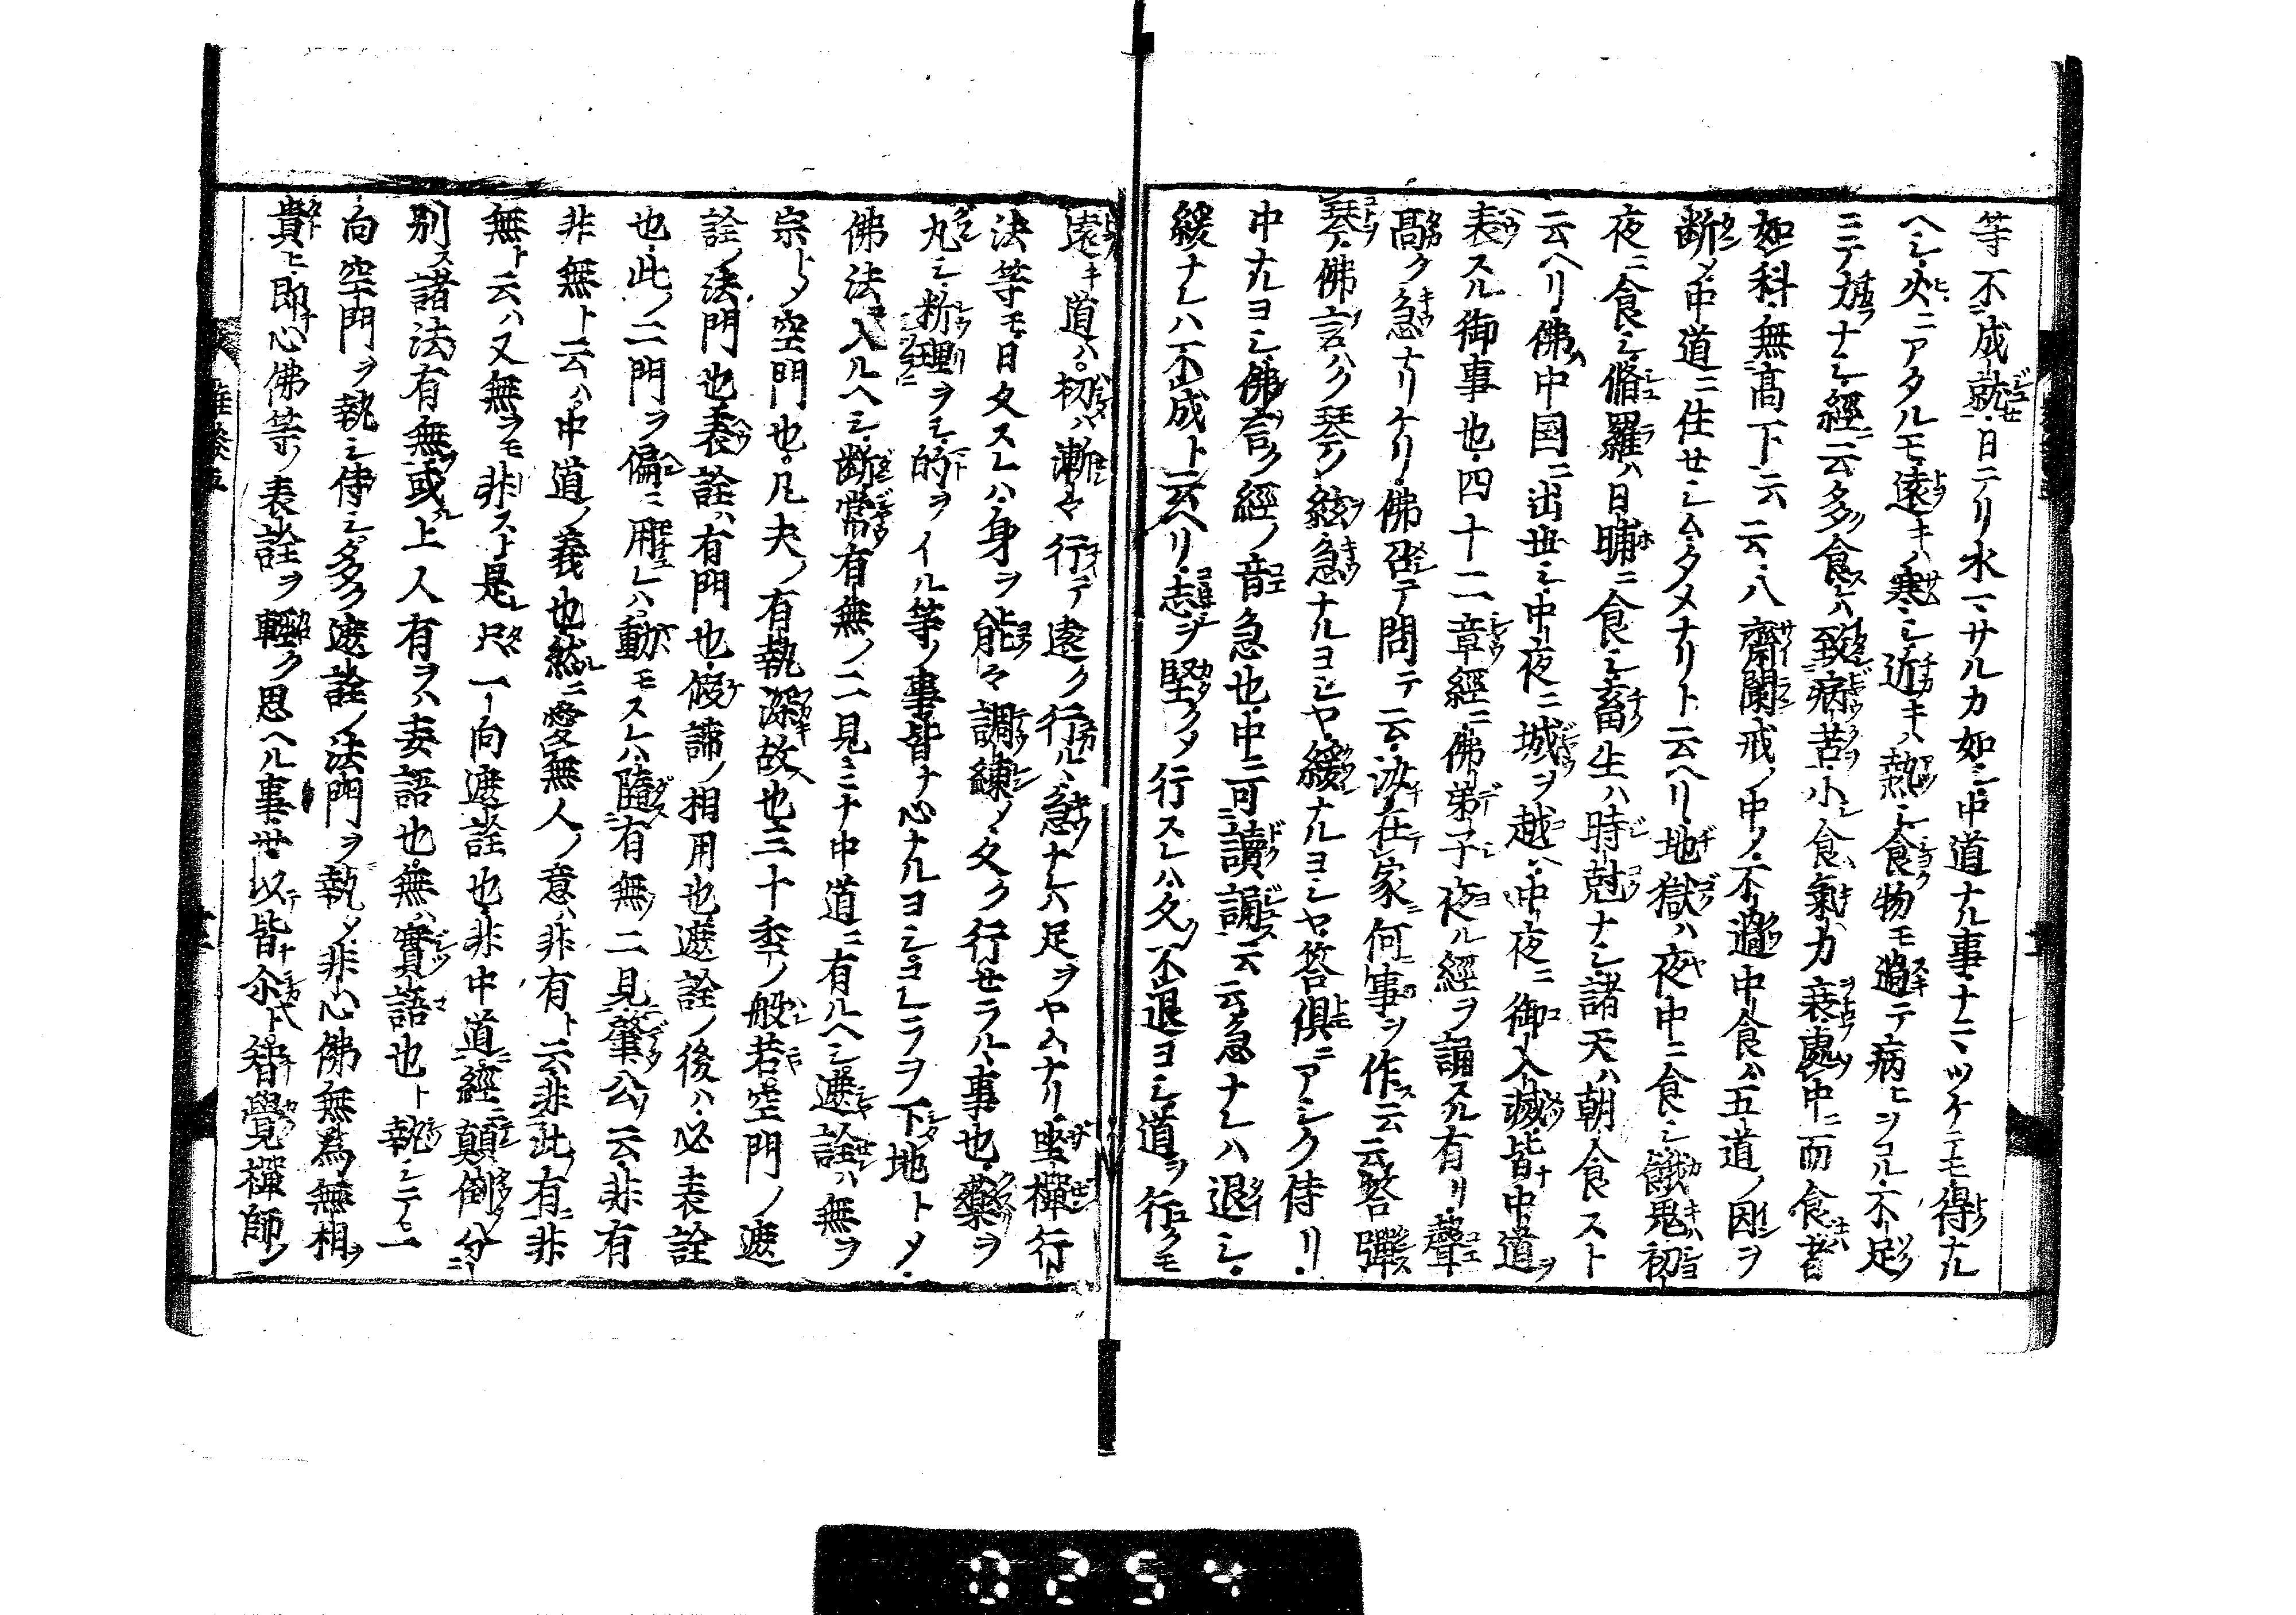 等不成就日ニリ水一サルカ如シ中道ナル事ナニヽツケテモ得ナル
ヘシ火ニアタルモ遠キハ寒シ近キハ熱シ食物モ過テ病ヒヲコル不足
ニテ力ナシ經ニ云多食スレハ致病苦小食ハ氣力衰處中ニ而食者
如秤無高下云云八齋闌戒ノ中ノ不過中食ハ五道ノ因ヲ
断メ中道ニ住セシムタメナリト云ヘリ地獄ハ夜中ニ食シ餓鬼ハ初
夜ニ食シ脩羅ハ日晡ニ食シ畜生ハ時尅ナシ諸天ハ朝食スト
云ヘリ佛ハ中国ニ出世シ中夜ニ城ヲ越ヘ中夜ニ御入滅皆ナ中道ヲ
表スル御事也四十二章經ニ佛弟子夜ル經ヲ誦スル有リ聲
高ク急ナリケリ佛召テ問テ云汝チ在家ニ何事ヲ作ス云云答彈
琴佛言ハク琴ノ絃急ナルヨシヤ緩ナルヨシヤ答倶ニアシク侍リ
中ナルヨシ佛言ク經ノ音急也中ニ可讀誦云云急ナレハ退シ
緩ナレハ不成ト云ヘリ志ヲ堅クメ行スレハ久ク不退ヨシ道ヲ行クモ
遠キ道ハ初ハ漸々行テ遠ク行ル急ナレハ足ヲヤムナリ坐禪行
法等モ日久スレハ身ヲ能々調練メ久ク行セラルヽ事也藥ヲ
丸シ粉理ヲシ的ヲイル等ノ事皆ナ心ナルヨシコレラヲ下地トメ
佛法入ルヘシ断常有無ノ二見ミナ中道ニ有ルヘシ遮詮ハ無ヲ
宗トメ空門也凡夫ノ有執深故也三十季ノ般若空門ノ遮
詮ノ法門也表詮ハ有門也假諦ノ相用也遮詮ノ後ハ必表詮
也此ノ二門ヲ偏ニ用レハ動モスレハ墮有無ノ二見肇公ノ云非有
非無ト云ハ中道ノ義也然ニ愛無人ノ意ハ非有ト云非此有非
無ト云ハ又無ヲモ非スト是レ只一向遮詮也非中道ニ經ニ顛倒分
別ス諸法有無或ル上人有ヲハ妄語也無ハ實語也ト執シテ一
向空門ヲ執シ侍シ多ク遮詮ノ法門ヲ執メ非心佛無爲無相ヲ
貴ヒ即心佛等ノ表詮ヲ輕ク思ヘル事世以皆ナ尒ト智覺禪師ノ